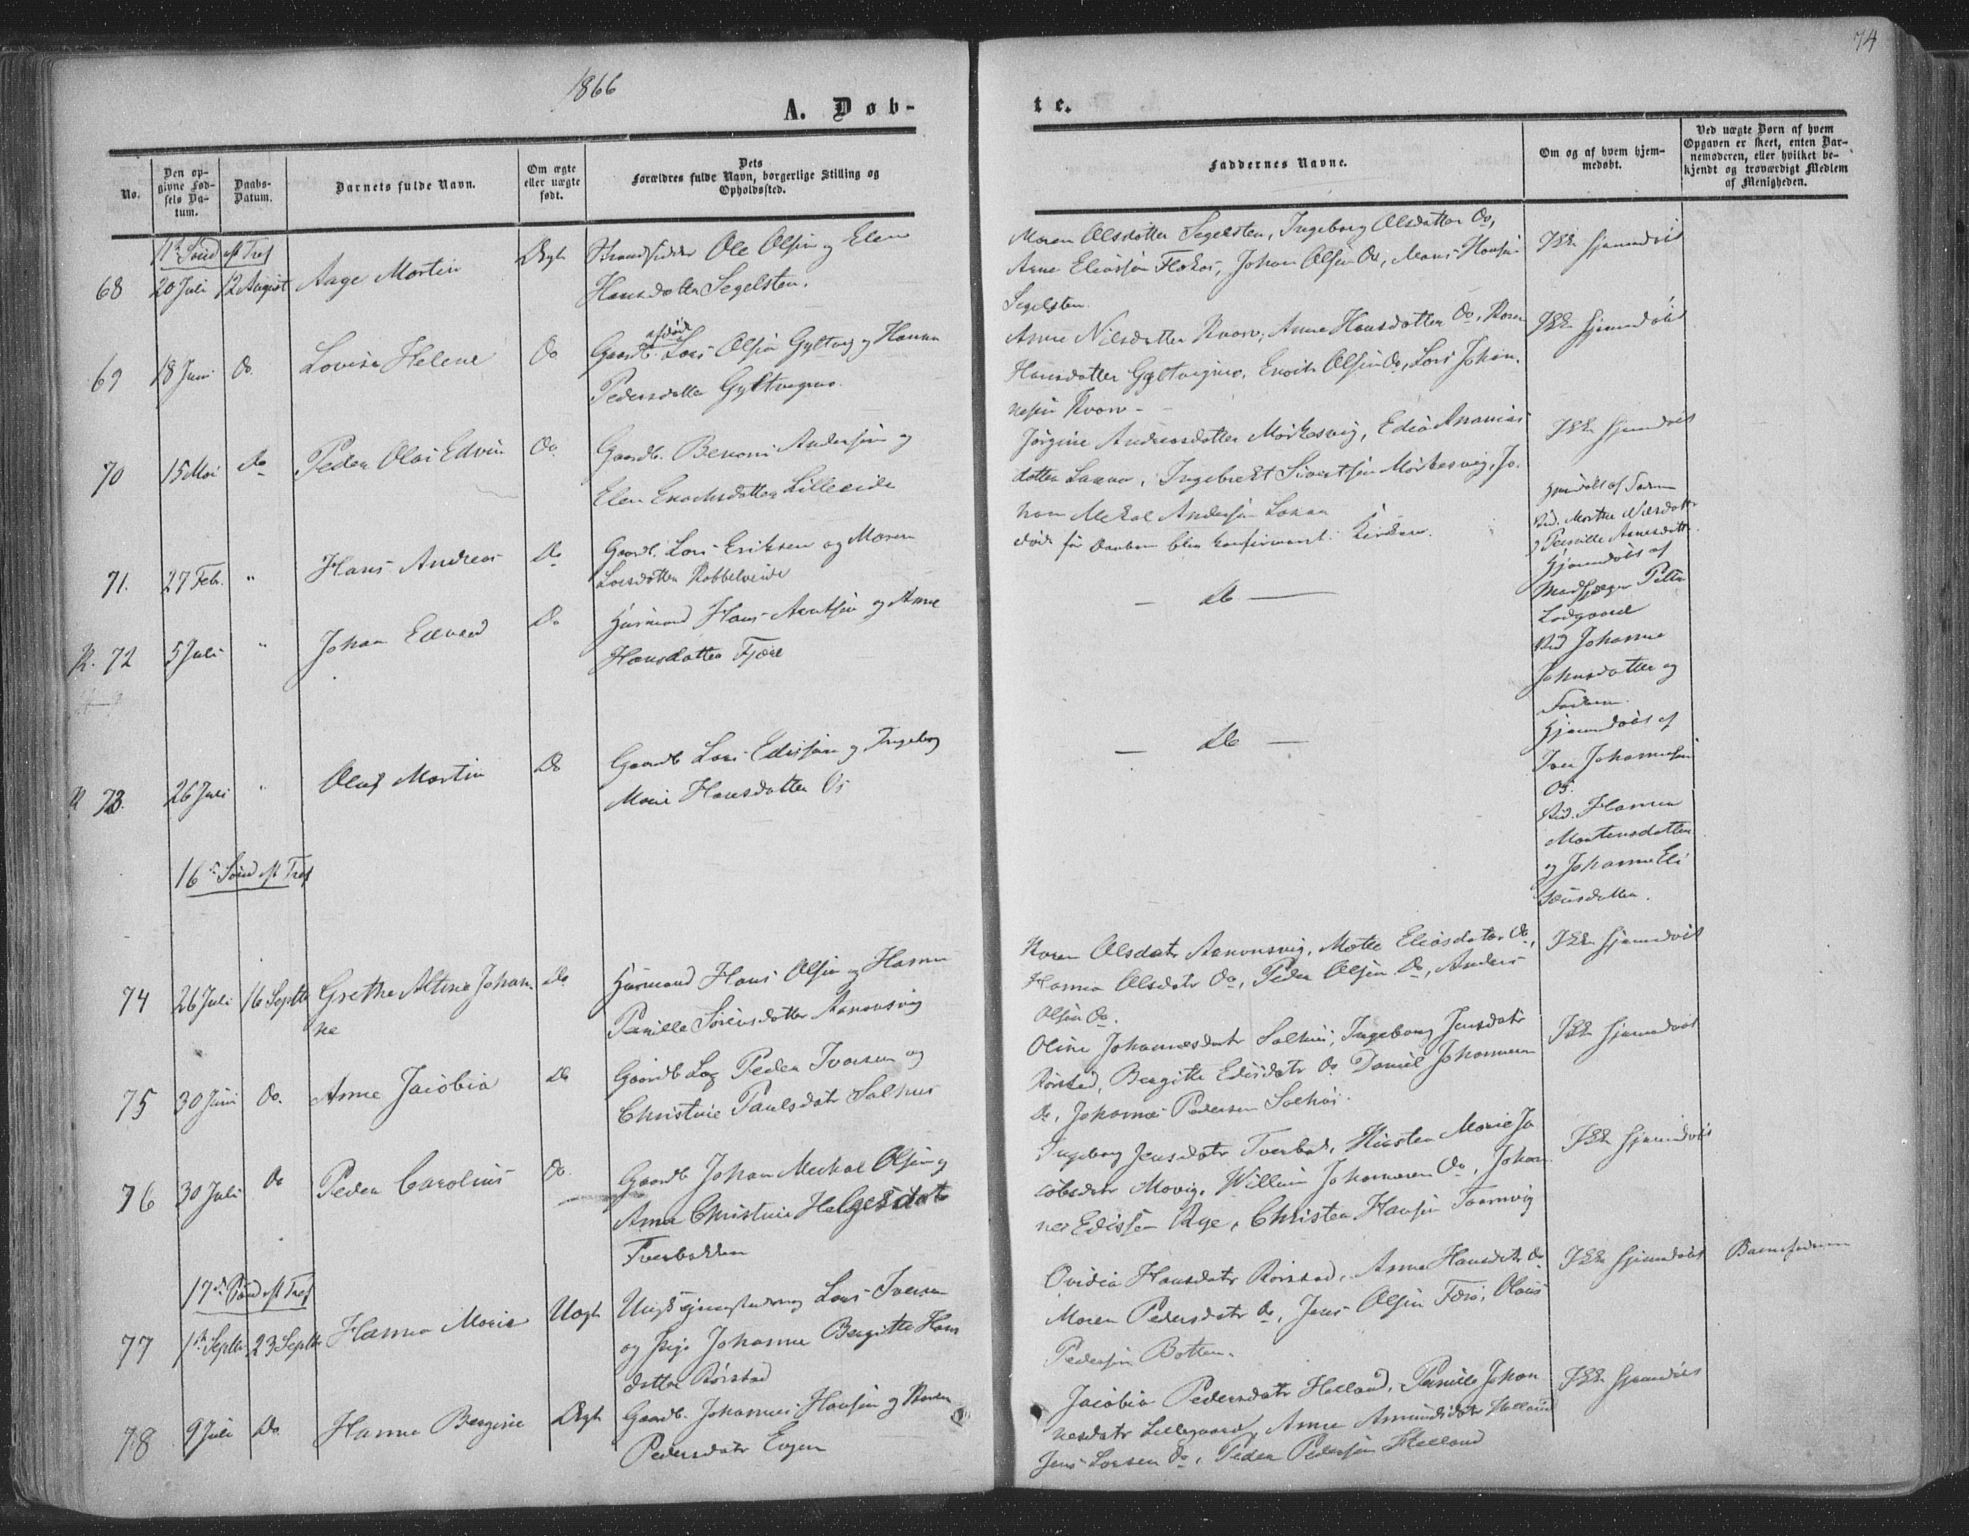 1866
74
A. Døb-
te.
No.
Den op-
givne Fød-
sels Da-
tum.
Daabs-
Datum.
Barnets fulde Navn.
Om ægte
eller uægte
født.
Dets
Forældres fulde Navn, borgerlige Stilling og
Opholdssted.
Faddernes Navne.
Om og af hvem hjem-
medøbt.
Ved uægte Børn af hvem
Opgaven er skeet, enten Bar-
nemoderen, eller hvilket be-
kjendt og troværdigt Medlem
af Menigheden.
11te Sønd eft Tref
68 20 Juli 12 August Aage Martin Ægte Strandsidder Ole Olsen og Elen
Hansdatter Segelsten.
Maren Olsdatter Segelsten, Ingeborg Olsdatter Do,
Arne Eliassen Johan Olsen Do, Hansen
Segelsten.
Ikke hjemmedøbt
69 18 Juni Do. Lovise Helene Do Gaardb. afdøde Lars Olsen Gyltvig og Hanna
Pedersdatter Gyltvignes.
Anne Nilsdatter Kvarv, Anna Hansdatter Do, Karen
Hansdatter Gyltvignes, Enok Olsen Do, Lars Johan-
nesen Kvarv
Ikke hjemmedøbt
70 15 Mai Do Peder Olai Edvin Do. Gaardb. Benoni Andersen og
Elen Enochsdatter Lilleeide
Jørgine Andreasdatter Mørkesvig, Edia Ananias
datter Laxaa, Ingebrekt Sivertsen Mørkesvig, Jo-
han Mekal Andersen Laxaa
Ikke hjemmedøbt
71. 27 Feb. " Hans Andreas Do Gaardb. Lars Eriksen og Maren
Larsdatter Kobbelveide
død før Daaben blev konfirmert i Kirken.
Hjemdøbt af Faderen
Vid. Marthe Nilsdatter
og Pernille Arnesdatter
R. 72 5 Juli " Johan Edvard Do Husmand Hans Arntsen og Anne
Hansdatter Fjære
— Do —
Hjemmedøbt af
Petter
Lodgaard
Vid Johanna
Johnsdatter og
Faderen.
R 73. 26 Juli " Oluf Martin Do Gaardb Lars Edissen og Ingeborg
Marie Hansdatter Os
— Do —
Hjemmedøbt af
Iver Johannesen
Os.
Vid. Hanna
Mortensdatter
og Johanna Eli
Jensdatter.
16de Sønd eft Tref
74 26 Juli 16 Septbr Grethe Altine Johan-
ne
Do Husmand Hans Olsen og Hanna
Pernille Sørensdatter Aanonsvig
Karen Olsdatr Aanonsvig, Mette Eliasdatter Do,
Hanna Olsdatr Do, Peder Olsen Do, Anders
Olsen Do.
Ikke hjemmedøbt
75 30 Juni Do. Anne Jacobia Do Gaardb Peder Iversen og
Christine Paulsdatr Salhus
Oline Johannesdatr Salhus, Ingeborg Jensdatr
Rørstad, Bergitte Edisdatr Do Daniel Johannesen
Do, Johannes Pedersen Salhus.
Ikke hjemmedøbt
76 30 Juli Do Peder Carolius Do. Gaardb Johan Mechal Olsen og
Anne Christine Helgesdatr
Tverbakken
Ingeborg Jensdatr Tverbak, Kirsten Marie Ja-
cobsdatr Movig, Willum Johannesen Do, Johan-
nes Edissen Rage, Christen Hansen Tverrvig
Ikke hjemmedøbt
17de Sønd eft Tref
77 1te Septbr 23 Septbr Hanna Marie Uægte Ungk Lars Iversen
og Pige Johanne Bergitte Hans-
datter Rørstad
Ovidia Hansdatr Rørstad, Anne Hansdatr Do
Maren Pedersdatr Do, Jens Olsen Færø, Olaus
Pedersen Botten.
Ikke hjemmedøbt
Barnefaderen
78 9 Juli Do. Hanna Bergine Ægte Gaardb. Johannes Hansen og Karen
Pedersdatr Evjen
Jacobia Pedersdatr Helland, Pernille Johan-
nesdatr Lillegaard, Anne Amundsdatr Helland
Jens Larsen Do, Peder Pedersen Helland
Ikke hjemmedøbt